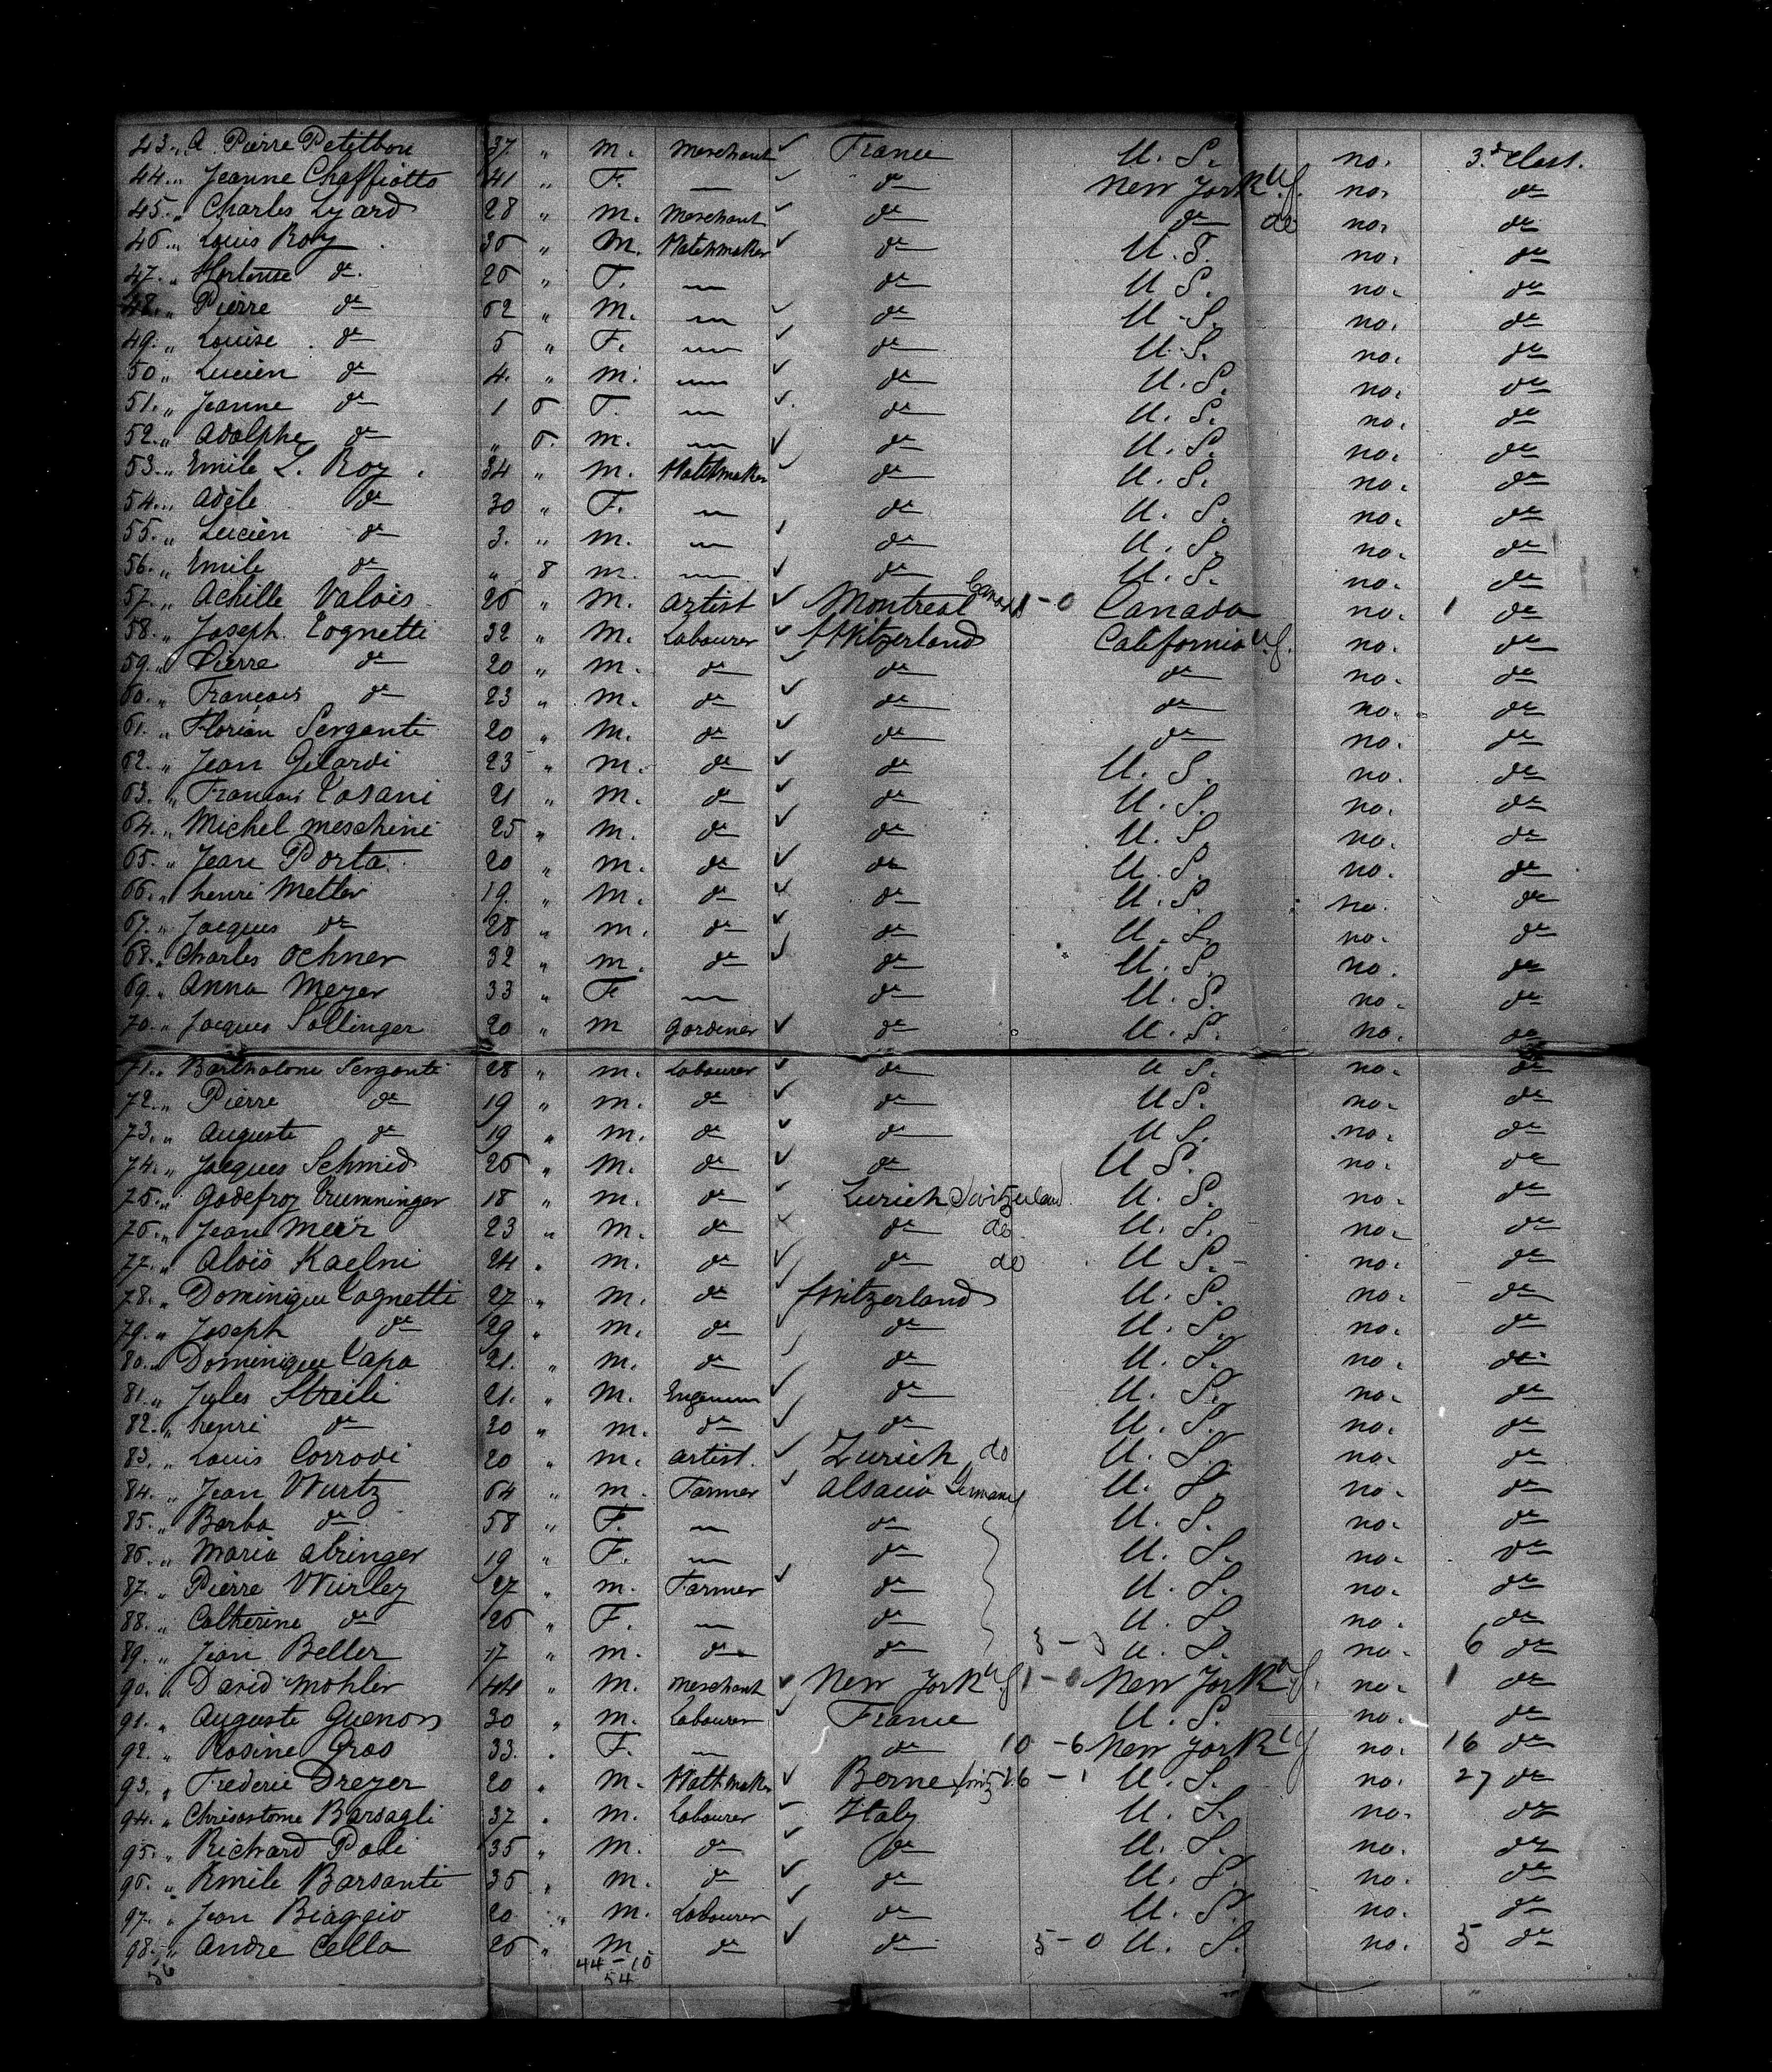 43. „ A. Pierre Petitbon 37 „ m. Merchant ✓ France U. S. no. 3.d Class.
44. „ Jeanne Chaffiotto 41 „ F. — ✓ do New York U.S. no. do
45. „ Charles Lyard 28 „ m. Merchant ✓ do do do no. do
46. „ Louis Roy 36 „ M. Watchmaker ✓ do U. S. no. do
47. „ Hortense do. 26 „ F. — do U S. no. do
48. „ Pierre do 62 „ M. — ✓ do U. S. no. do
49. „ Louise do 5 „ F. — ✓ do U. S. no. do
50. „ Lucien do 4. „ m. — ✓ do U. S. no. do
51. „ Jeanne do 1 6 F. — ✓ do U. S. no. do
52. „ Adolphe do „ 6. m. — ✓ do U. S. no. do
53. „ Emile L. Roy 34 „ m. Watchmaker ✓ do U. S. no. do
54. „ Adèle do 30 „ F. — do U. S. no. do
55. „ Lucien do 3. „ m. — ✓ do U. S. no. do
56. „ Emile do „ 8 m. — ✓ do U. S. no. do
57. „ Achille Valois 26 „ M. Artist ✓ Montreal Canada 1 - 0 Canada no. 1 do
58. „ Joseph Tognetti 32 „ M. Labourer ✓ Switzerland California U.S. no. do
59. „ Pierre do 20 „ m. do ✓ do do no. do
60. „ François do 23 „ m. do ✓ do do no. do
61. „ Florian Serganti 20 „ M. do ✓ do do no. do
62. „ Jean Gilardi 23 „ m. do ✓ do U. S. no. do
63. „ François Tosani 21 „ m. do ✓ do U. S. no. do
64. „ Michel Meschini 25 „ m. do ✓ do U. S. no. do
65. „ Jean Porta. 20 „ m. do ✓ do U. S. no. do
66. „ henri Metter 19. „ M. do ✓ do U. S. no. do
67. „ Jacques do 28 „ m. do ✓ do U. S. no. do
68. „ Charles Ochner 32 „ m. do ✓ do U. S. no. do
69. „ Anna Meyer 33 „ F — do U. S. no. do
70. „ Jacques Sollinger 20 „ m Gardener ✓ do U. S. no. do
71. „ Bartholome Serganti 28 „ m. Labourer ✓ do U S. no. do
72. „ Pierre do 19 „ m. do ✓ do U S. no. do
73. „ Auguste do 19 „ m. do ✓ do U S. no. do
74. „ Jacques Schmid 26 „ M. do ✓ do U S. no. do
75. „ Godefroy Trumninger 18 „ m. do ✓ Zurich Switzerland U. S. no. do
76. „ Jean Meïr 23 „ m. do ✓ do do U. S. no. do
77. „ Aloïs Kaelni 24 „ m. do ✓ do do U S. no. do
78. „ Dominique Tognetti 27 „ m. do ✓ Switzerland U. S. no. do
79. „ Joseph do 29 „ m. do ✓ do U. S. no. do
80. „ Dominique Capa 21. „ m. do ✓ do U. S. no. do
81. „ Jules Streili 21. „ M. ✓ do U. S. no. do
82. „ henri do 20 „ m. do ✓ do U. S. no. do
83. „ Louis Corrodi 20 „ m. Artist. ✓ Zurich do U. S. no. do
84. „ Jean Wurtz 64 „ m. Farmer ✓ Alsacia Germany U. S. no. do
85. „ Barba do 58 „ F. — do U. S. no. do
86. „ Maria Abringer 19 „ F. — do U. S. no. do
87. „ Pierre Wurley 27 „ m. Farmer ✓ do U. S. no. do
88. „ Catherine do 26 „ F. — do U. S. no. do
89. „ Jean Beller 17 „ m. do do 3 - 3 U. S. no. 6 do
90. „ David Mohler 44 „ M. Merchant ✓ New York U.S. 1 - 0 New York U.S. no. 1 do
91. „ Auguste Guenon 30 „ m. Labourer ✓ France U. S. no. do
92. „ Rosine Gros 33. „ F. — do 10 - 6 New York no. 16 do
93. „ Frederic Dreyer 20 „ m. Watchmaker ✓ Berne Switz 26 - 1 U. S. no. 27 do
94. „ Chrisostome Barsagli 37 „ m. Labourer ✓ Italy U. S. no. do
95. „ Richard Poli 35 „ M. do ✓ do U. S. no. do
96. „ Emile Barsanti 35 „ m. do ✓ do U. S. no. do
97. „ Jean Biaggio 20 „ m. Labourer ✓ do U. S. no. do
98. „ André Cella 26 „ M do ✓ do 5 - 0 U. S. no. 5 do
56 44 - 10
54